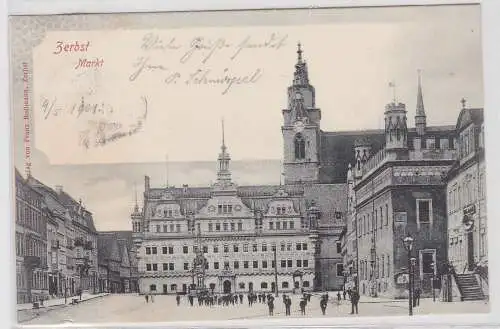 Zerbst
Markt
Viele Grüße sendet
Ihre
9/5 1901.
Verlag von Franz Bollmann, Zerbst